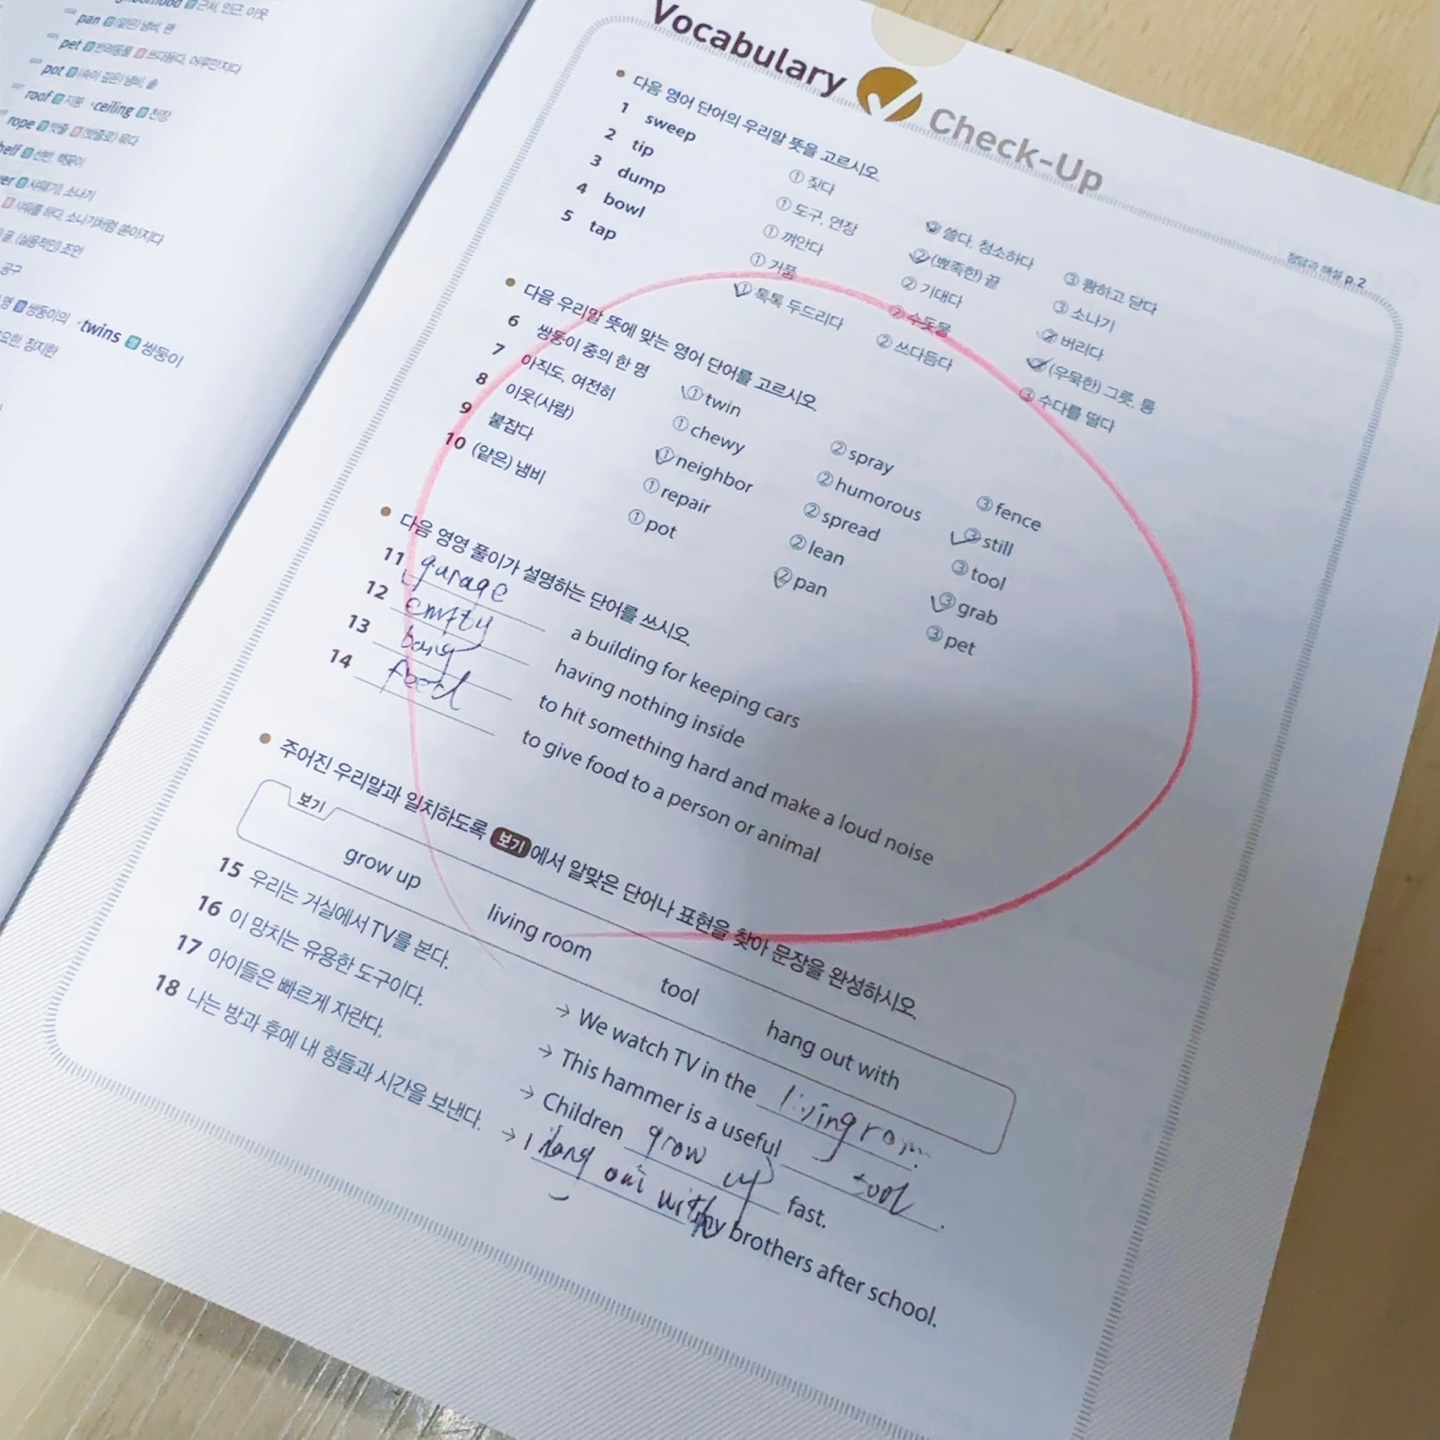 pan 명 (얕은) 냄비, 팬
pet 명 반려동물 동 쓰다듬다, 어루만지다
pot 명 (속이 깊은) 냄비, 솥
roof 명 지붕 ·ceiling 명 천장
rope 명 밧줄 동 (밧줄로) 묶다
helf 명 선반, 책꽂이
er 명 샤워(기), 소나기
동 샤워를 하다, 소나기처럼 쏟아지다
끝, (실용적인) 조언
공구
명 형 쌍둥이의 ·twins 명 쌍둥이
요한, 정지한
Vocabulary Check-Up
정답과 해설 p.2
다음 영어 단어의 우리말 뜻을 고르시오.
1 sweep ① 짖다 ② 쓸다, 청소하다 ③ 쾅하고 닫다
2 tip ① 도구, 연장 ② (뾰족한) 끝 ③ 소나기
3 dump ① 껴안다 ② 기대다 ③ 버리다
4 bowl ① 거품 ② 수돗물 ③ (우묵한) 그릇, 통
5 tap ① 톡톡 두드리다 ② 쓰다듬다 ③ 수다를 떨다
다음 우리말 뜻에 맞는 영어 단어를 고르시오.
6 쌍둥이 중의 한 명 ① twin ② spray ③ fence
7 아직도, 여전히 ① chewy ② humorous ③ still
8 이웃(사람) ① neighbor ② spread ③ tool
9 붙잡다 ① repair ② lean ③ grab
10 (얕은) 냄비 ① pot ② pan ③ pet
다음 영영 풀이가 설명하는 단어를 쓰시오.
11 garage a building for keeping cars
12 empty having nothing inside
13 bang to hit something hard and make a loud noise
14 feed to give food to a person or animal
주어진 우리말과 일치하도록 보기 에서 알맞은 단어나 표현을 찾아 문장을 완성하시오.
보기
grow up living room tool hang out with
15 우리는 거실에서 TV를 본다. → We watch TV in the living room.
16 이 망치는 유용한 도구이다. → This hammer is a useful tool.
17 아이들은 빠르게 자란다. → Children grow up fast.
18 나는 방과 후에 내 형들과 시간을 보낸다. → I hang out with my brothers after school.